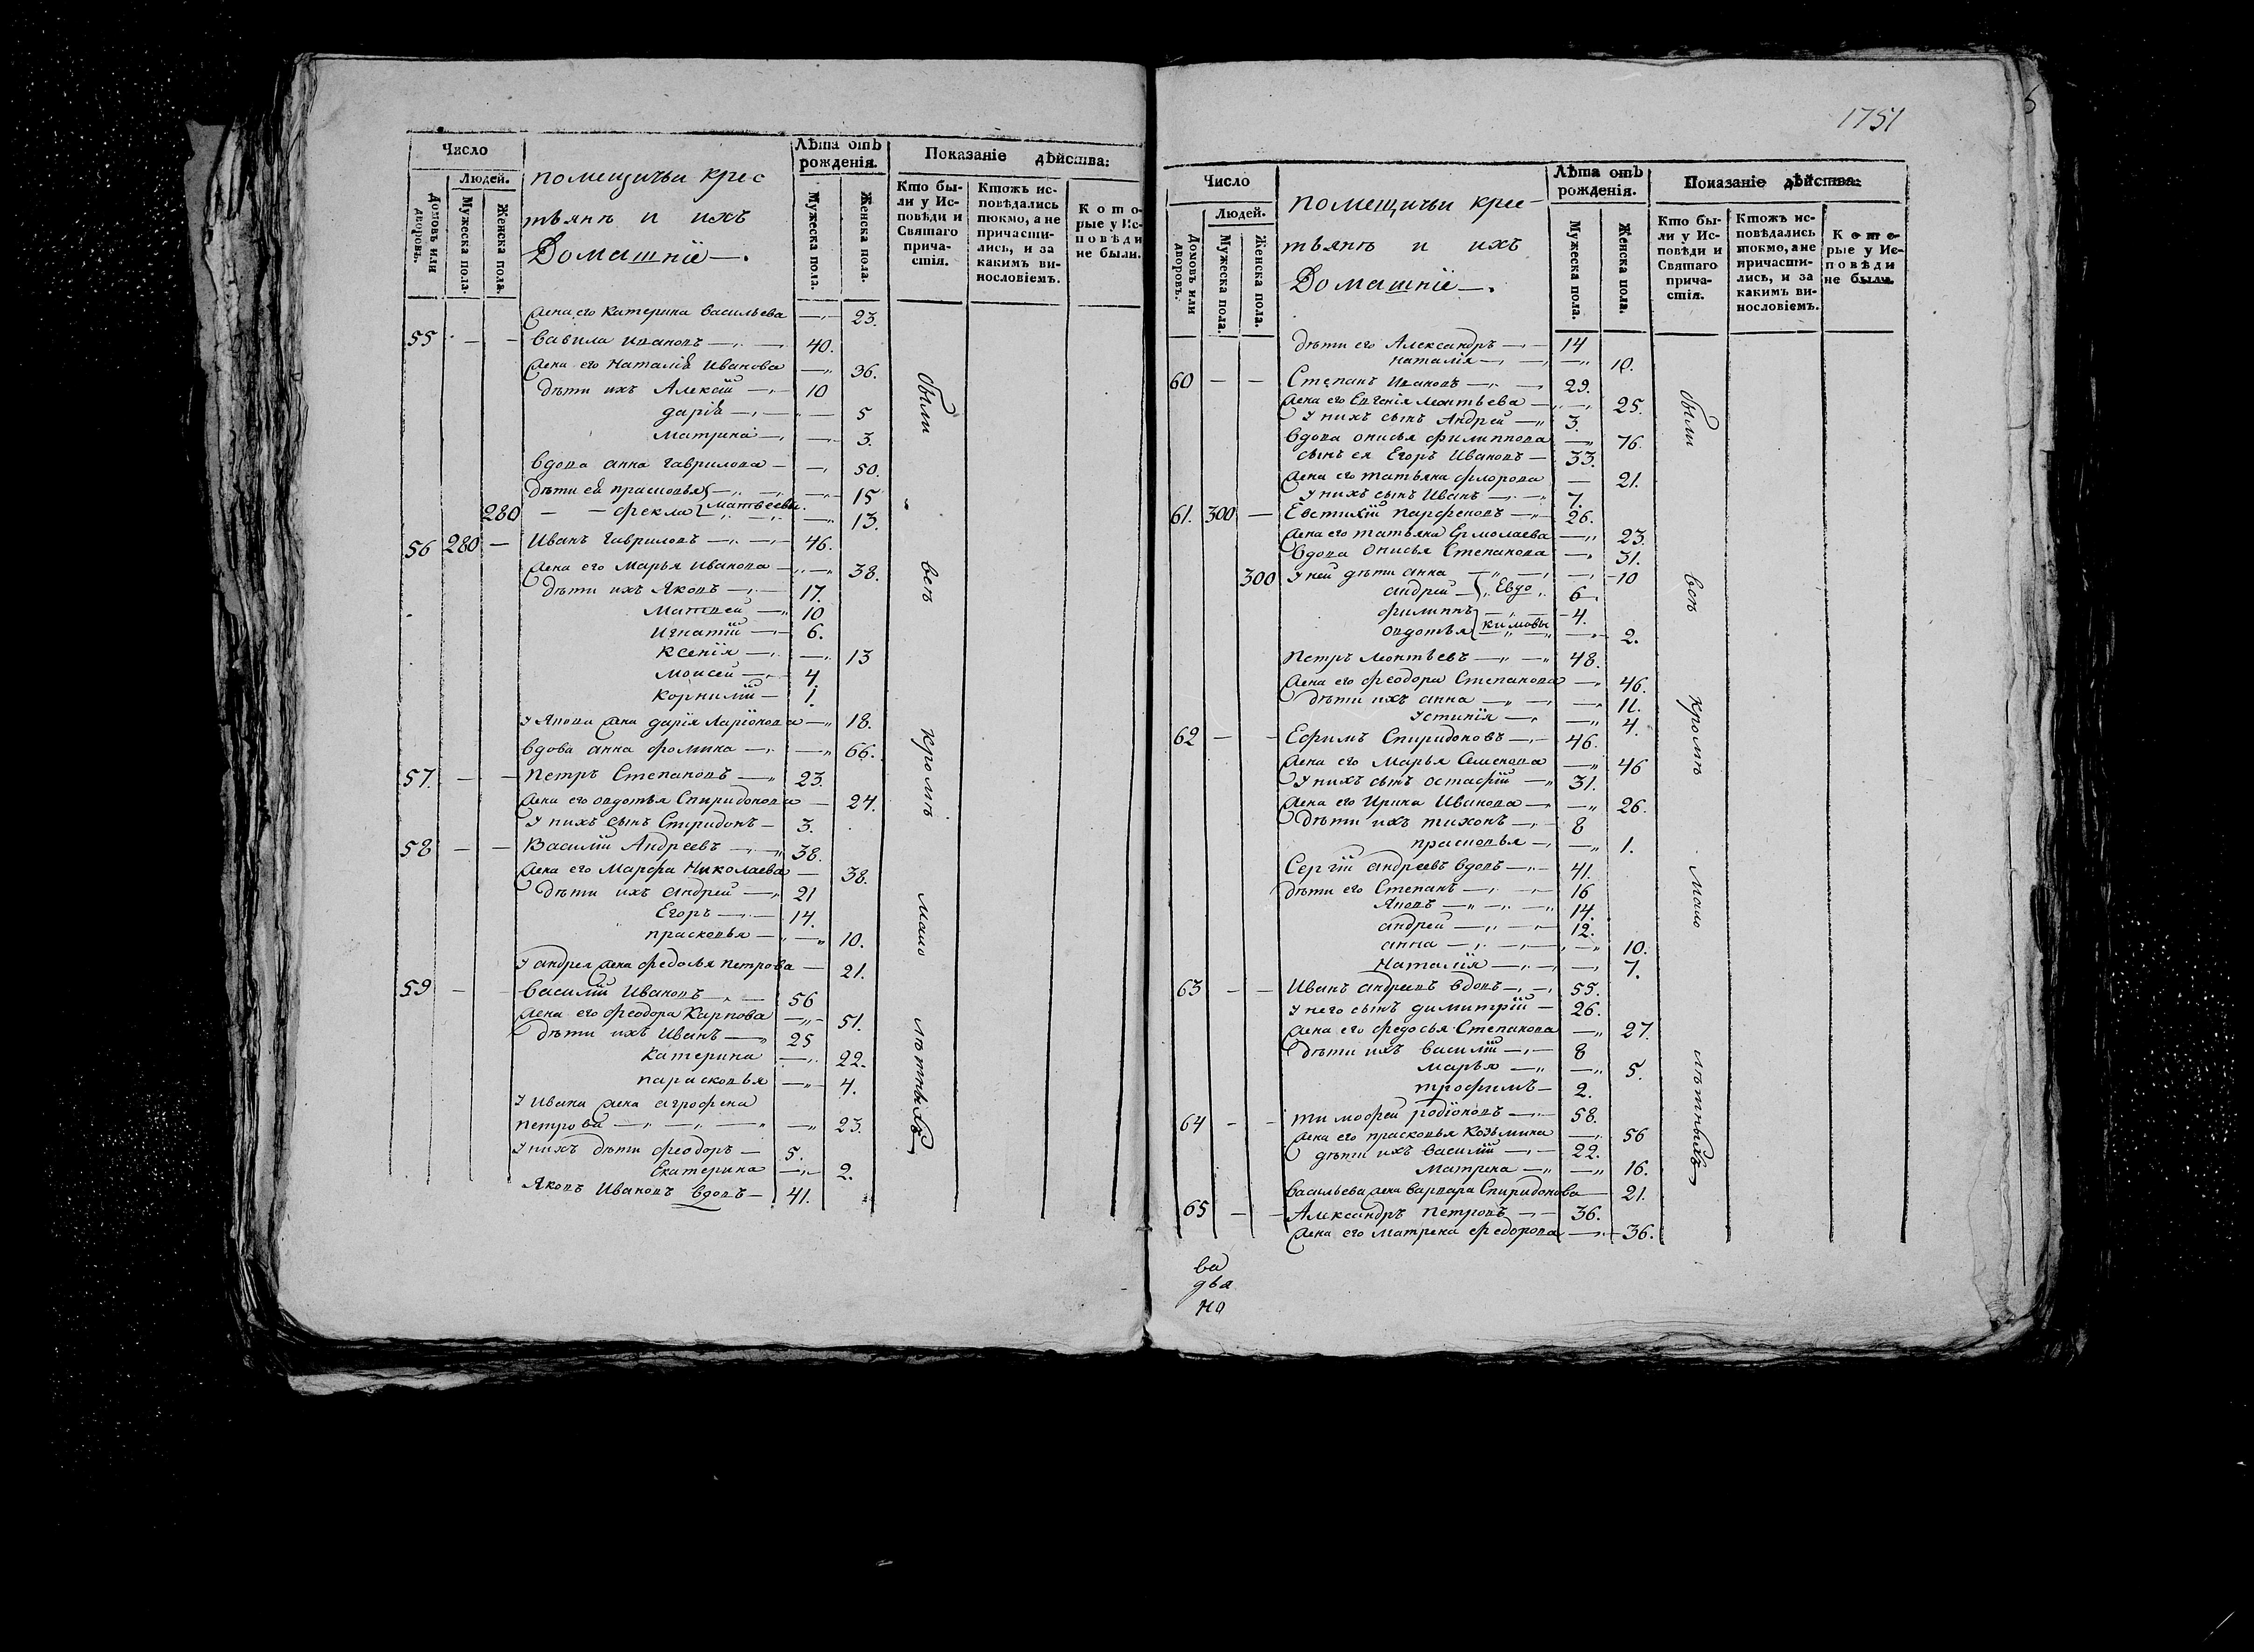 Число
Людей.
Домовъ или дворовъ.
Мужеска пола.
Женска пола.
помещичьи крес
тьянъ и ихъ
Домашніе.
Лѣта отъ рожденія.
Мужеска пола.
Женска пола.
Показаніе дѣйства:
Кто были у Исповѣди и Святаго причастія.
Ктожъ исповѣдались токмо, а не причастились, и за какимъ винословіемъ.
Которые у Исповѣди не были.
жена его Катерина Васильева 23.
55 - - Вавила Ивановъ 40.
жена его Наталія Иванова 36.
дѣти ихъ Алексій 10
дарія 5
Матрина 3.
вдова анна гаврилова 50.
дѣти ея прасковья 15
280 фекла Матвеевы. 13.
56 280 - Иванъ гавриловъ 46.
жена его Марья Иванова 38.
дѣти ихъ Яковъ 17.
Матвей 10
Игнатій 6.
Ксенія 13
Моисей 4.
Корнилій 1.
у Якова жена дарія Ларіонова 18.
вдова анна фомина 66.
57. - - Петръ Степановъ 23.
жена его овдотья Спиридонова 24.
у нихъ сынъ Спиридонъ 3.
58 - - Василій Андреевъ 38.
жена его Марфа Николаева 38.
дѣти ихъ андрей 21
Егоръ 14.
прасковья 10.
у андрея жена федосья петрова 21.
59 - - Василій Ивановъ 56
жена его феодора Карпова 51.
дѣти ихъ Иванъ 25
Катерина 22.
парасковья 4.
у Ивана жена агрофена
петрова 23.
у нихъ дѣти феодоръ 5.
Екатерина 2.
Яковъ Ивановъ вдовъ 41.
были
всѣ
кромѣ
мало
лѣтныхъ
1751
Число
Людей.
Домовъ или дворовъ.
Мужеска пола.
Женска пола.
помещичьи крес-
тьянъ и ихъ
Домашніе.
Лѣта отъ рожденія.
Мужеска пола.
Женска пола.
Показаніе дѣйства:
Кто были у Исповѣди и Святаго причастія.
Ктожъ исповѣдались токмо, а не причастились, и за какимъ винословіемъ.
Которые у Исповѣди не были.
дѣти его Александръ 14
наталія 10.
60 - - Степанъ Ивановъ 29.
жена его Евгенія Леонтьева 25.
у нихъ сынъ Андрей 3.
вдова онисья филиппова 76.
сынъ ея Егоръ Ивановъ 33.
жена его татьяна флорова 21.
у нихъ сынъ Иванъ 7.
61. 300 - Евстихій парфеновъ 26.
жена его татьяна Ермолаева 23.
вдова онисья Степанова 31.
300 у ней дѣти анна 10
андрей Евдо 6
филиппъ 4.
овдотья кимовы 2.
Петръ Леонтьевъ 48.
жена его феодора Степанова 46.
дѣти ихъ анна 11.
устинія 4.
62 - - Ефимъ Спиридоновъ 46.
жена его Марья Семенова 46
у нихъ сынъ остафій 31.
жена его Ирина Иванова 26.
дѣти ихъ тихонъ 8
прасковья 1.
Сергій андреевъ вдовъ 41.
дѣти его Степанъ 16
Яковъ 14.
андрей 12.
анна 10.
Наталія 7.
63 - - Иванъ андреевъ вдовъ 55.
у него сынъ димитрій 26.
жена его федосья Степанова 27.
дѣти ихъ василій 8
марья 5.
трофимъ 2.
64 - - тимофей родіоновъ 58.
жена его прасковья Козьмина 56
дѣти ихъ василій 22.
матрена 16.
васильева жена варвара Спиридонова 21.
65 - - Александръ петровъ 36.
жена его матрена федорова 36.
были
всѣ
кромѣ
мало
лѣтныхъ